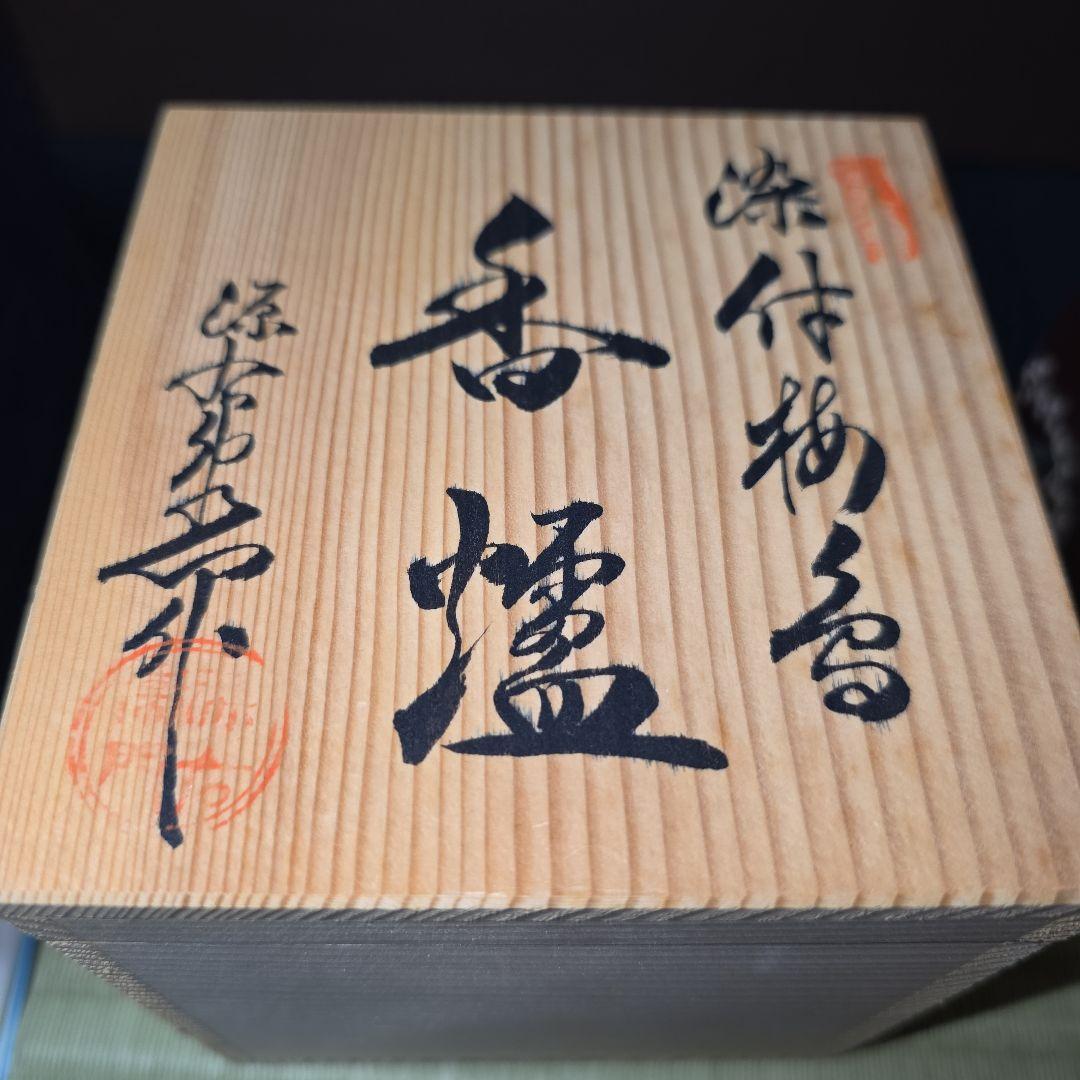 染付梅鳥
香爐
源右衛門作